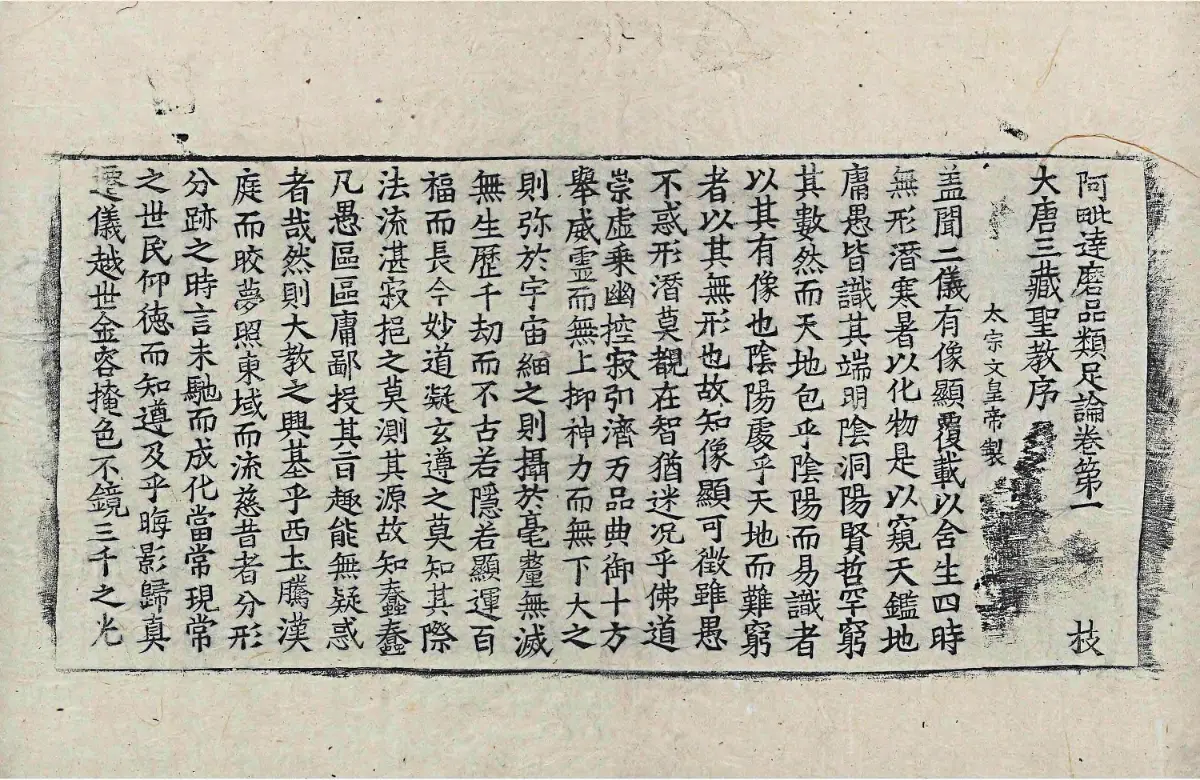 阿毗達磨品類足論卷第一 枝
大唐三藏聖教序
太宗文皇帝製
盖聞二儀有像顯覆載以含生四時
無形潛寒暑以化物是以窺天鑑地
庸愚皆識其端明陰洞陽賢哲罕窮
其數然而天地包乎陰陽而易識者
以其有像也陰陽處乎天地而難窮
者以其無形也故知像顯可徵雖愚
不惑形潛莫覩在智猶迷况乎佛道
崇虛乗幽控寂引濟万品典御十方
舉威靈而無上抑神力而無下大之
則弥於宇宙細之則攝於毫釐無滅
無生歷千劫而不古若隱若顯運百
福而長今妙道凝玄遵之莫知其際
法流湛寂挹之莫測其源故知蠢蠢
凡愚區區庸鄙投其旨趣能無疑惑
者哉然則大教之興基乎西土騰漢
庭而皎夢照東域而流慈昔者分形
分跡之時言未馳而成化當常現常
之世民仰德而知遵及乎晦影歸真
遷儀越世金容掩色不鏡三千之光